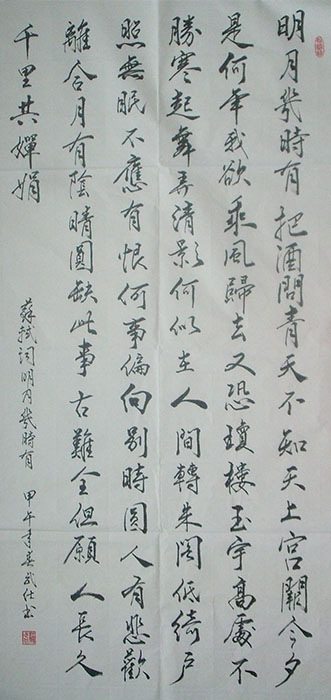 明月幾時有把酒問青天不知天上宮闕今夕
是何年我欲乘風歸去又恐瓊樓玉宇高處不
勝寒起舞弄清影何似在人間轉朱閣低綺户
照無眠不應有恨何事偏向別時圓人有悲歡
離合月有陰晴圓缺此事古難全但願人長久
千里共嬋娟
蘇軾詞明月幾時有 甲午年春武仕書